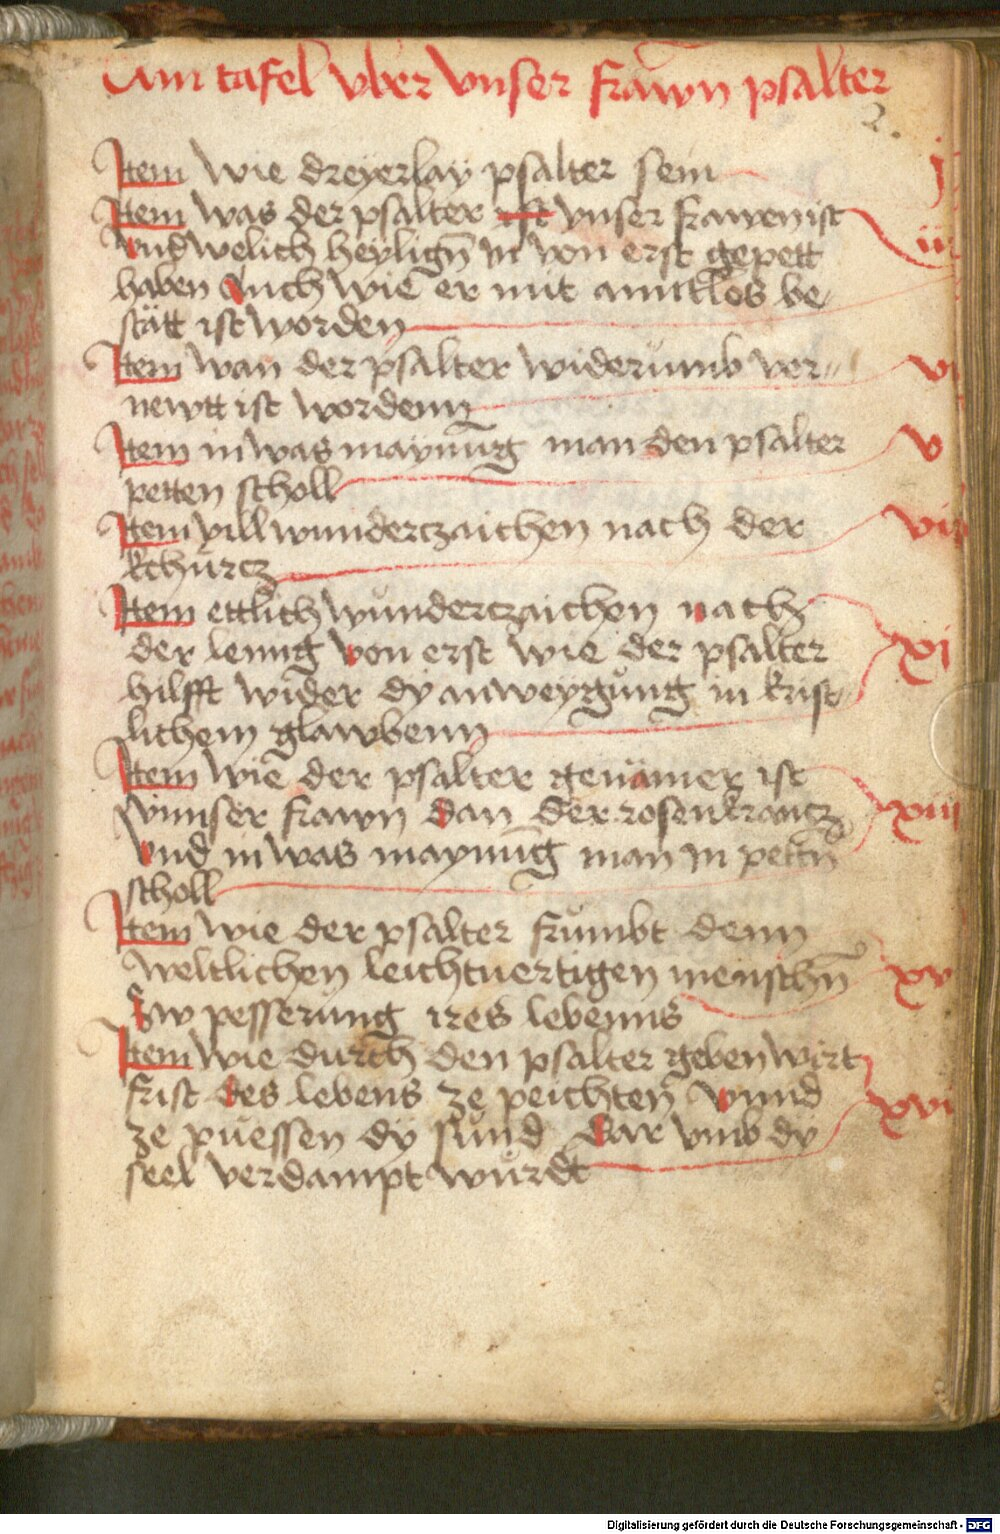 Ain tafel vber vnser frawn psalter
2.
Item wie dreyerlay psalter sein j
Item was der psalter ist vnser frawen ist
vnd welich heylign in von erst gepett iii
haben auch wie er mit antlos be
stätt ist worden
Item wan der psalter widerumb ver= vi
newtt ist wordenn
Item in was maynung man den psalter v
petten scholl
Item vill wunderczaichen nach der vii
kchürcz
Item ettlich wunderczaichen nach
der leng von erst wie der psalter xi
hilfft wider dy anweygung in krist
lichem glawbenn
Item wie der psalter genämer ist
vnnser frawn dan der rosenkrancz xiii
vnd in was maynung man in pettn
scholl
Item wie der psalter frumbt denn
weltlichen leichtuertigen menschn xv
zw pesserung ires lebenns
Item wie durch den psalter geben wirt
frist des lebens ze peichten vnnd xvi
ze püessen dy sünd dar vmb dy
seel verdampt würdt
Digitalisierung gefördert durch die Deutsche Forschungsgemeinschaft - DFG